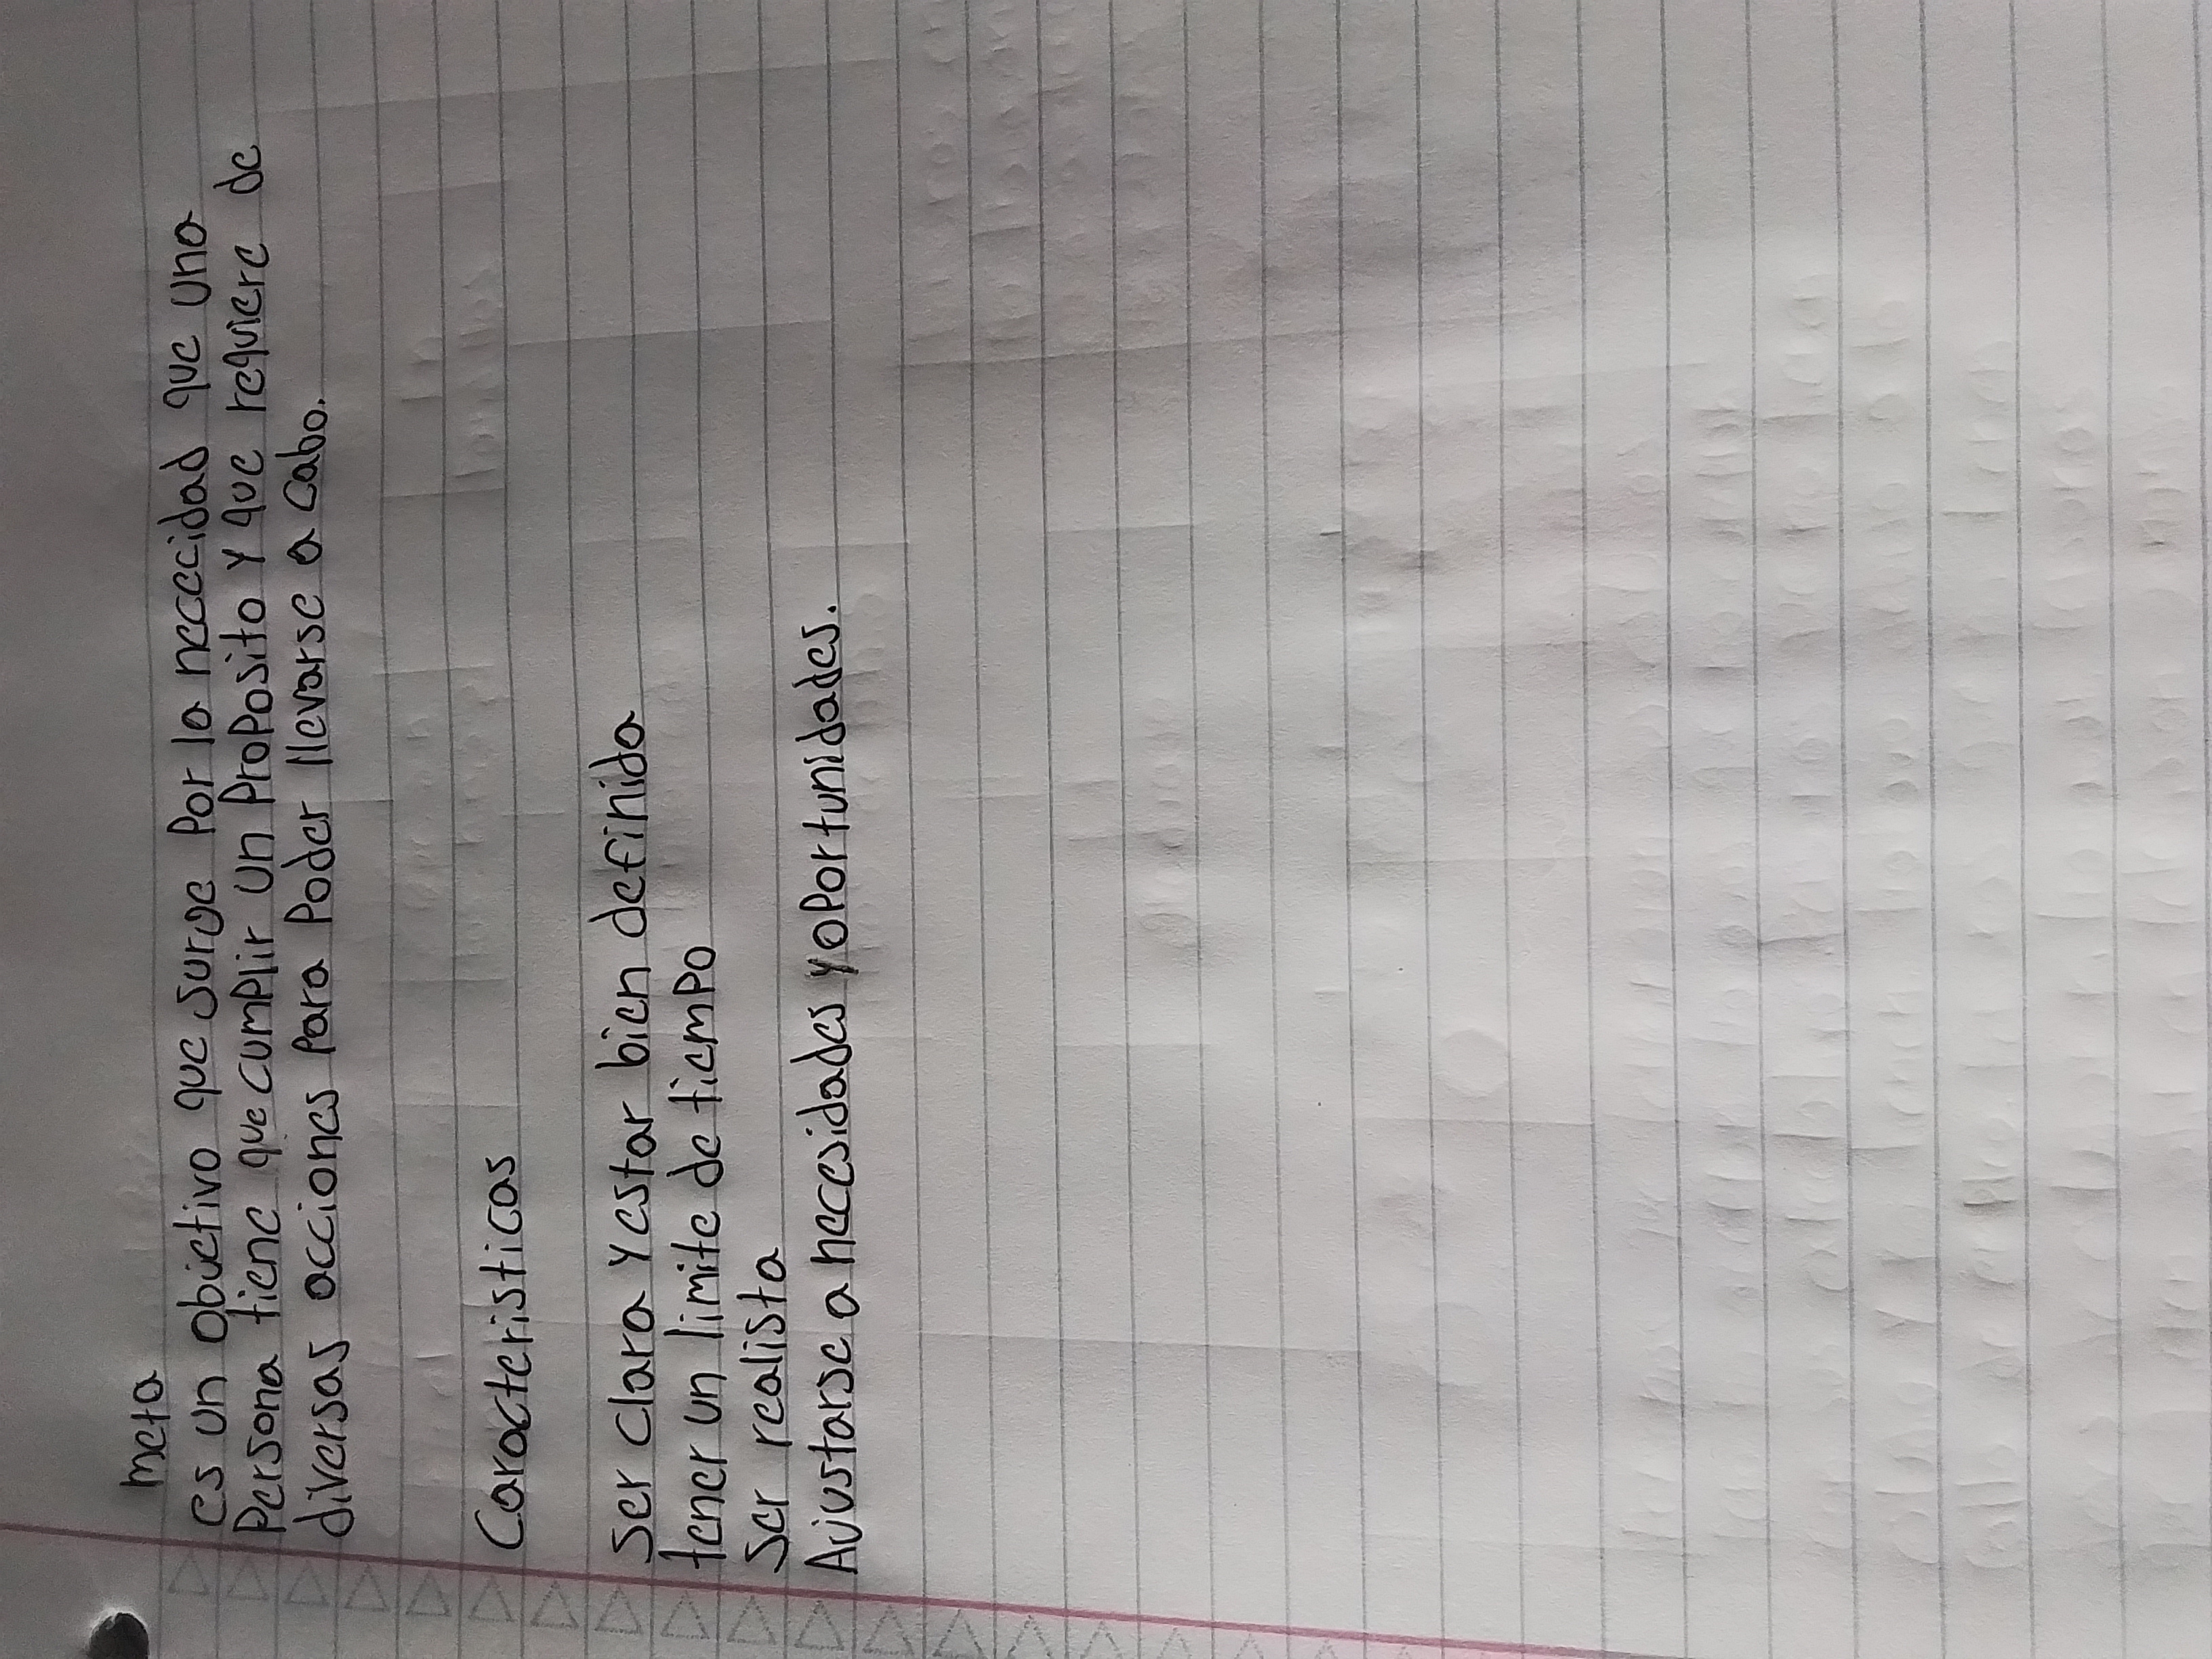 meta
es un objetivo que surge Por la nececidad que una
Persona tiene que cumplir un ProPosito y que requiere de
diversas acciones Para Poder llevarse a cabo.
Caracteristicas
Ser clara y estar bien definida
tener un limite de tiemPo
Ser realista
Ajustarse a necesidades y oPortunidades.